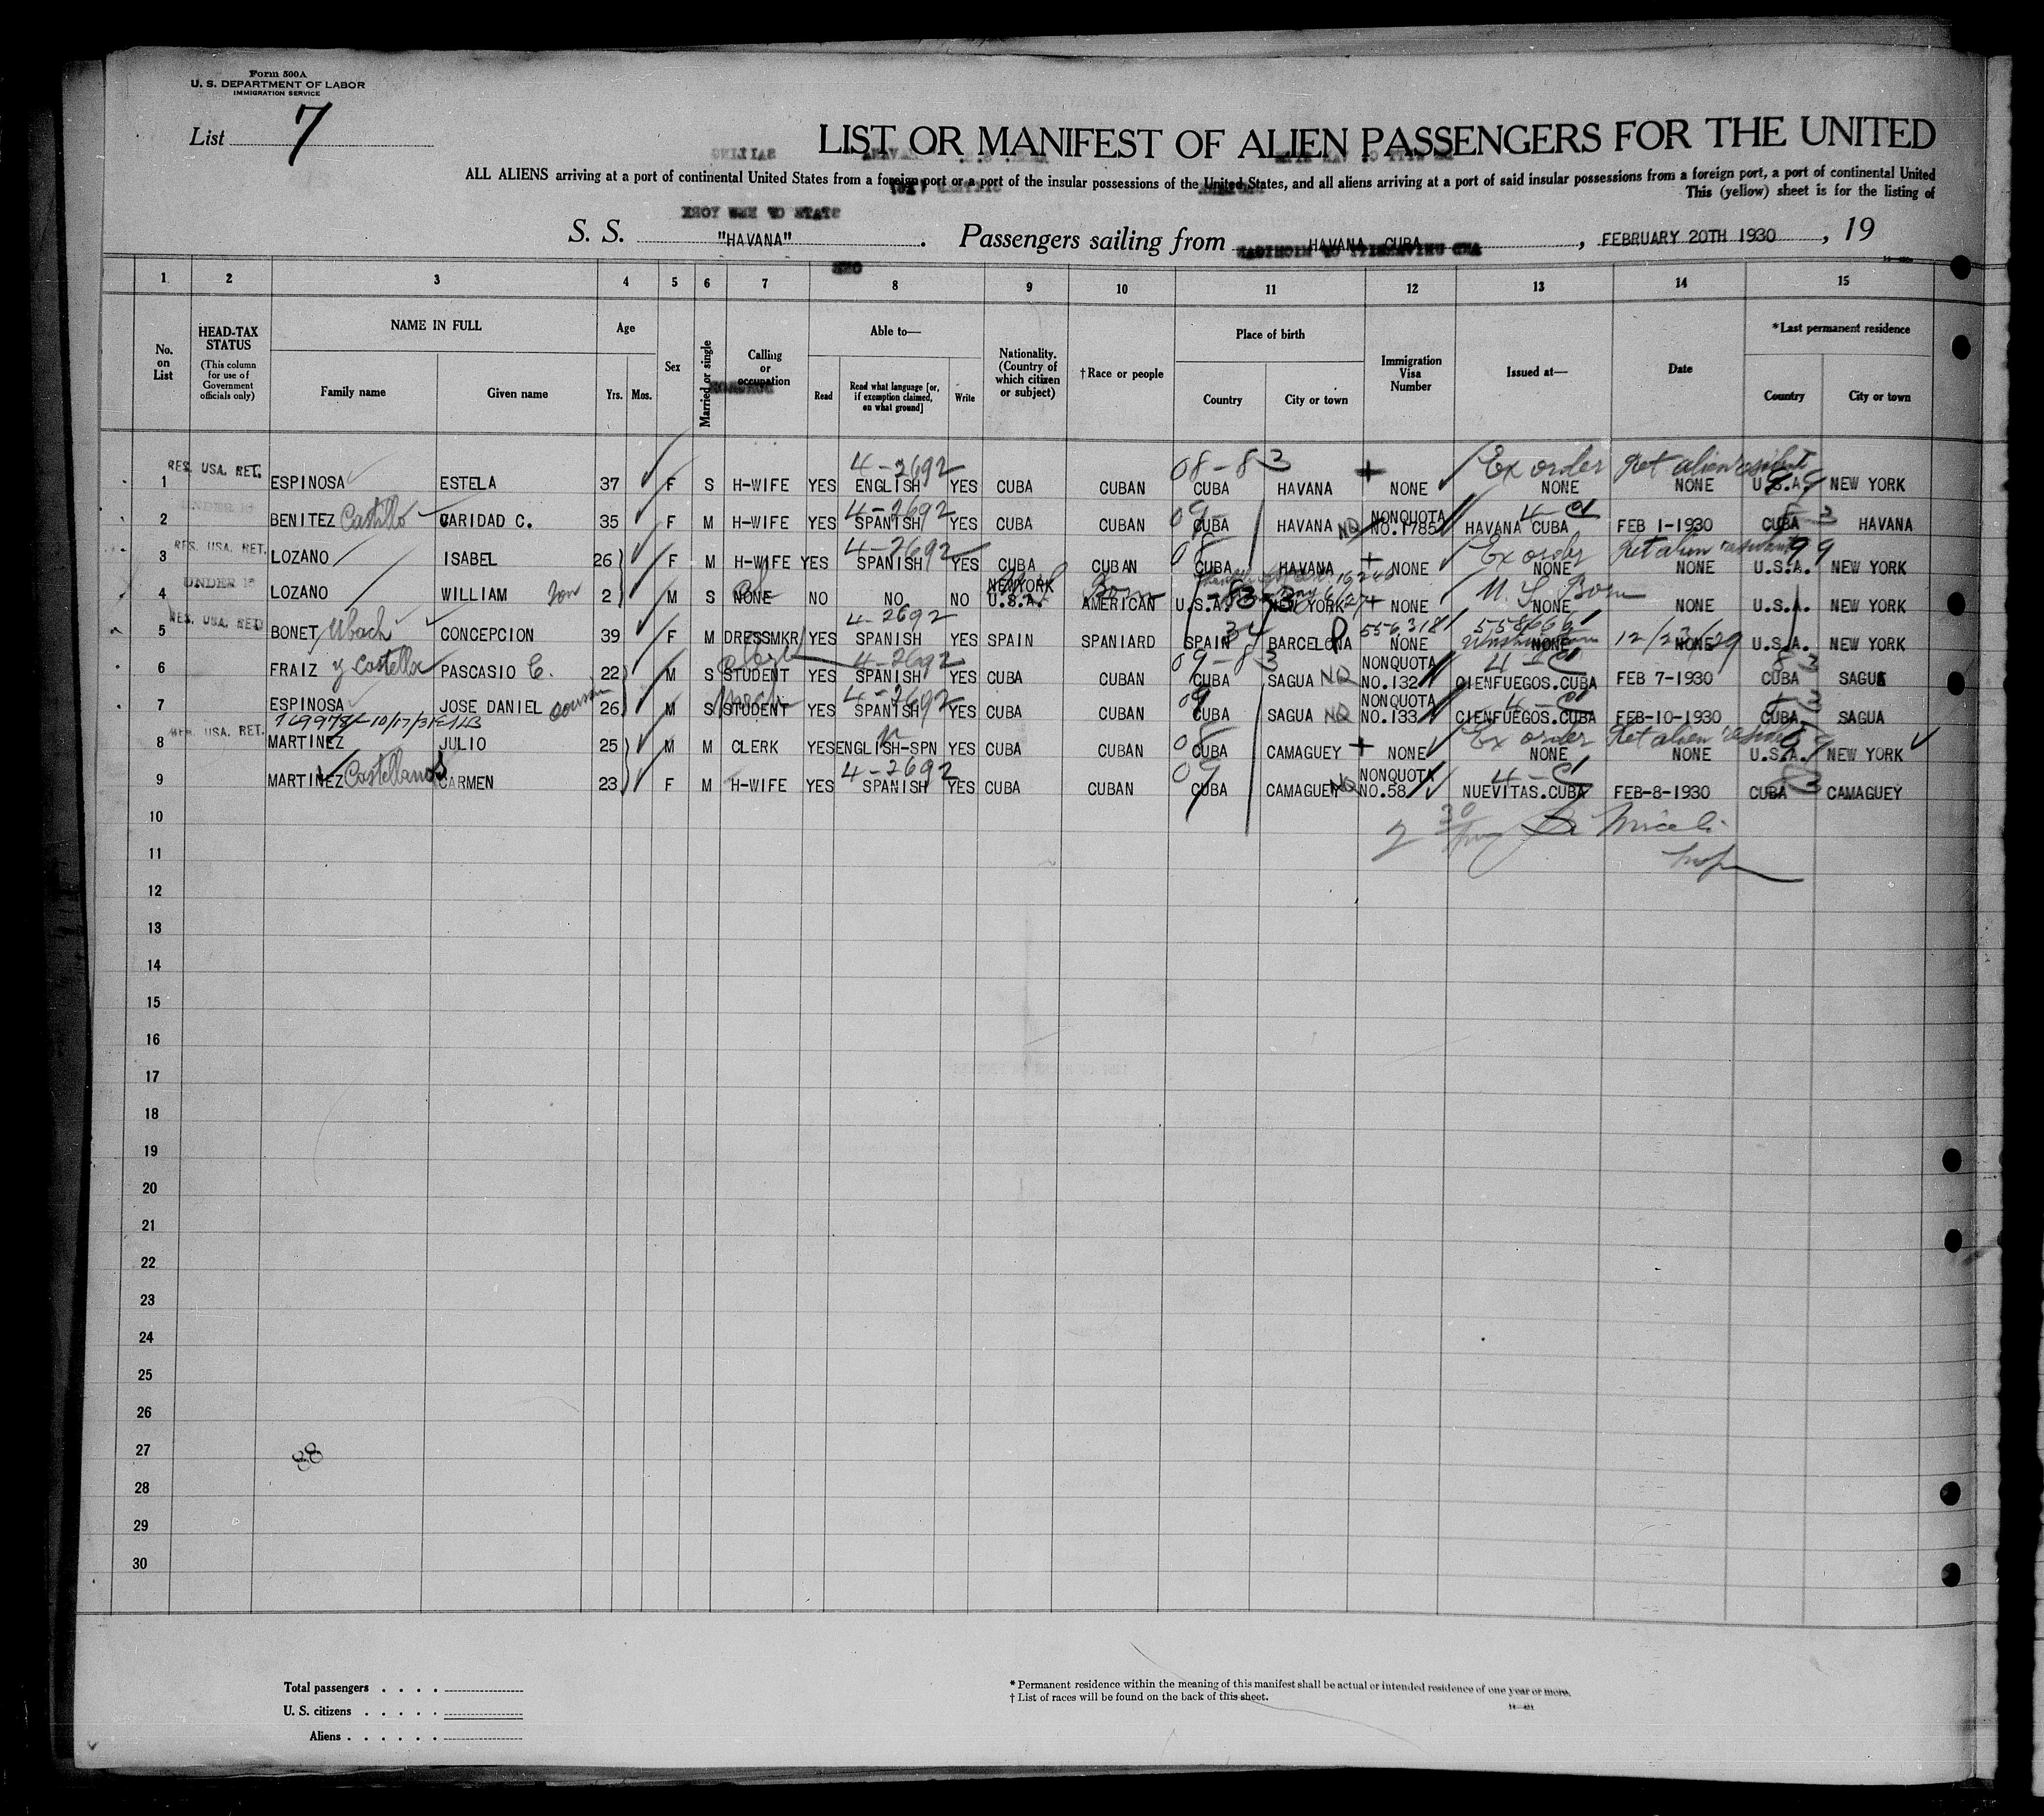 Form 500A
U. S. DEPARTMENT OF LABOR
IMMIGRATION SERVICE
List 7
LIST OR MANIFEST OF ALIEN PASSENGERS FOR THE UNITED
ALL ALIENS arriving at a port of continental United States from a foreign port or a port of the insular possessions of the United States, and all aliens arriving at a port of said insular possessions from a foreign port, a port of continental United
This (yellow) sheet is for the listing of
S. S. "HAVANA". Passengers sailing from HAVANA CUBA, FEBRUARY 20TH 1930, 19
1 2 3 4 5 6 7 8 9 10 11 12 13 14 15
No. on List
HEAD-TAX STATUS
(This column for use of Government officials only)
NAME IN FULL
Family name
Given name
Age
Yrs. Mos.
Sex
Married or single
Calling or occupation
Able to—
Read
Read what language [or, if exemption claimed, on what ground]
Write
Nationality. (Country of which citizen or subject)
†Race or people
Place of birth
Country
City or town
Immigration Visa Number
Issued at—
Date
*Last permanent residence
Country
City or town
4-2692 08-83 Ex order Ret alien resident
RES. USA. RET. 1 ESPINOSA ESTELA 37 F S H-WIFE YES ENGLISH YES CUBA CUBAN CUBA HAVANA NONE NONE NONE U.S.A. NEW YORK
UNDER 16 4-2692 09 NONQUOTA 4-C
2 BENITEZ Castillo CARIDAD C. 35 F M H-WIFE YES SPANISH YES CUBA CUBAN CUBA HAVANA NQ NO.1785 HAVANA CUBA FEB 1-1930 CUBA HAVANA
RES. USA. RET. 4-2692 08 Ex order Ret alien resident 99
3 LOZANO ISABEL 26 F M H-WIFE YES SPANISH YES CUBA CUBAN CUBA HAVANA NONE NONE NONE U.S.A. NEW YORK
UNDER 16 NEWYORK Born U.S. Born
4 LOZANO WILLIAM Son 2 M S NONE NO NO NO U.S.A. AMERICAN U.S.A. NEW YORK NONE NONE NONE U.S.A. NEW YORK
RES. USA. RET. 4-2692 34 556318 558666 Washington 12/23/29
5 BONET Ubach CONCEPCION 39 F M DRESSMKR YES SPANISH YES SPAIN SPANIARD SPAIN BARCELONA NONE NONE NONE U.S.A. NEW YORK
4-2692 09-83 NONQUOTA 4-C 83
6 FRAIZ y Castella PASCASIO E. 22 M S STUDENT YES SPANISH YES CUBA CUBAN CUBA SAGUA NQ NO.132 CIENFUEGOS.CUBA FEB 7-1930 CUBA SAGUA
4-2692 09 NONQUOTA 4-C
7 ESPINOSA JOSE DANIEL cousin 26 M S STUDENT YES SPANISH YES CUBA CUBAN CUBA SAGUA NQ NO.133 CIENFUEGOS.CUBA FEB-10-1930 CUBA SAGUA
08 Ex order Ret alien resident
RES. USA. RET. 8 MARTINEZ JULIO 25 M M CLERK YES ENGLISH-SPN YES CUBA CUBAN CUBA CAMAGUEY NONE NONE NONE U.S.A. NEW YORK
4-2692 09 NONQUOTA 4-C 83
9 MARTINEZ Castellanos CARMEN 23 F M H-WIFE YES SPANISH YES CUBA CUBAN CUBA CAMAGUEY NQ NO.58 NUEVITAS.CUBA FEB-8-1930 CUBA CAMAGUEY
10
11
12
13
14
15
16
17
18
19
20
21
22
23
24
25
26
27
28
29
30
Total passengers . . . .
U. S. citizens . . . . .
Aliens . . . . . .
* Permanent residence within the meaning of this manifest shall be actual or intended residence of one year or more.
† List of races will be found on the back of this sheet.